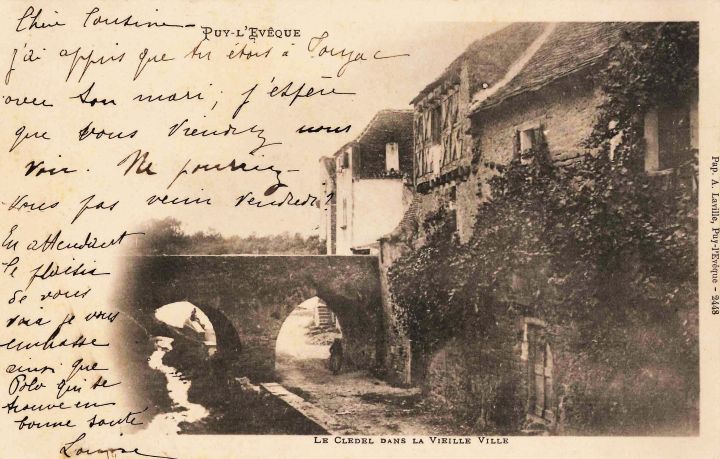 Chère Cousine -
PUY-L'EVÊQUE
j'ai appris que tu étais à Touzac
avec ton mari ; j'espère
que vous viendrez nous
voir. Ne pourriez-
vous pas venir vendredi ?
En attendant
le plaisir
de vous
voir je vous
embrasse
ainsi que
Polo qui se
trouve en
bonne santé
Louise
LE CLEDEL DANS LA VIEILLE VILLE
Pap. A. Laville, Puy-l'Evêque - 2448